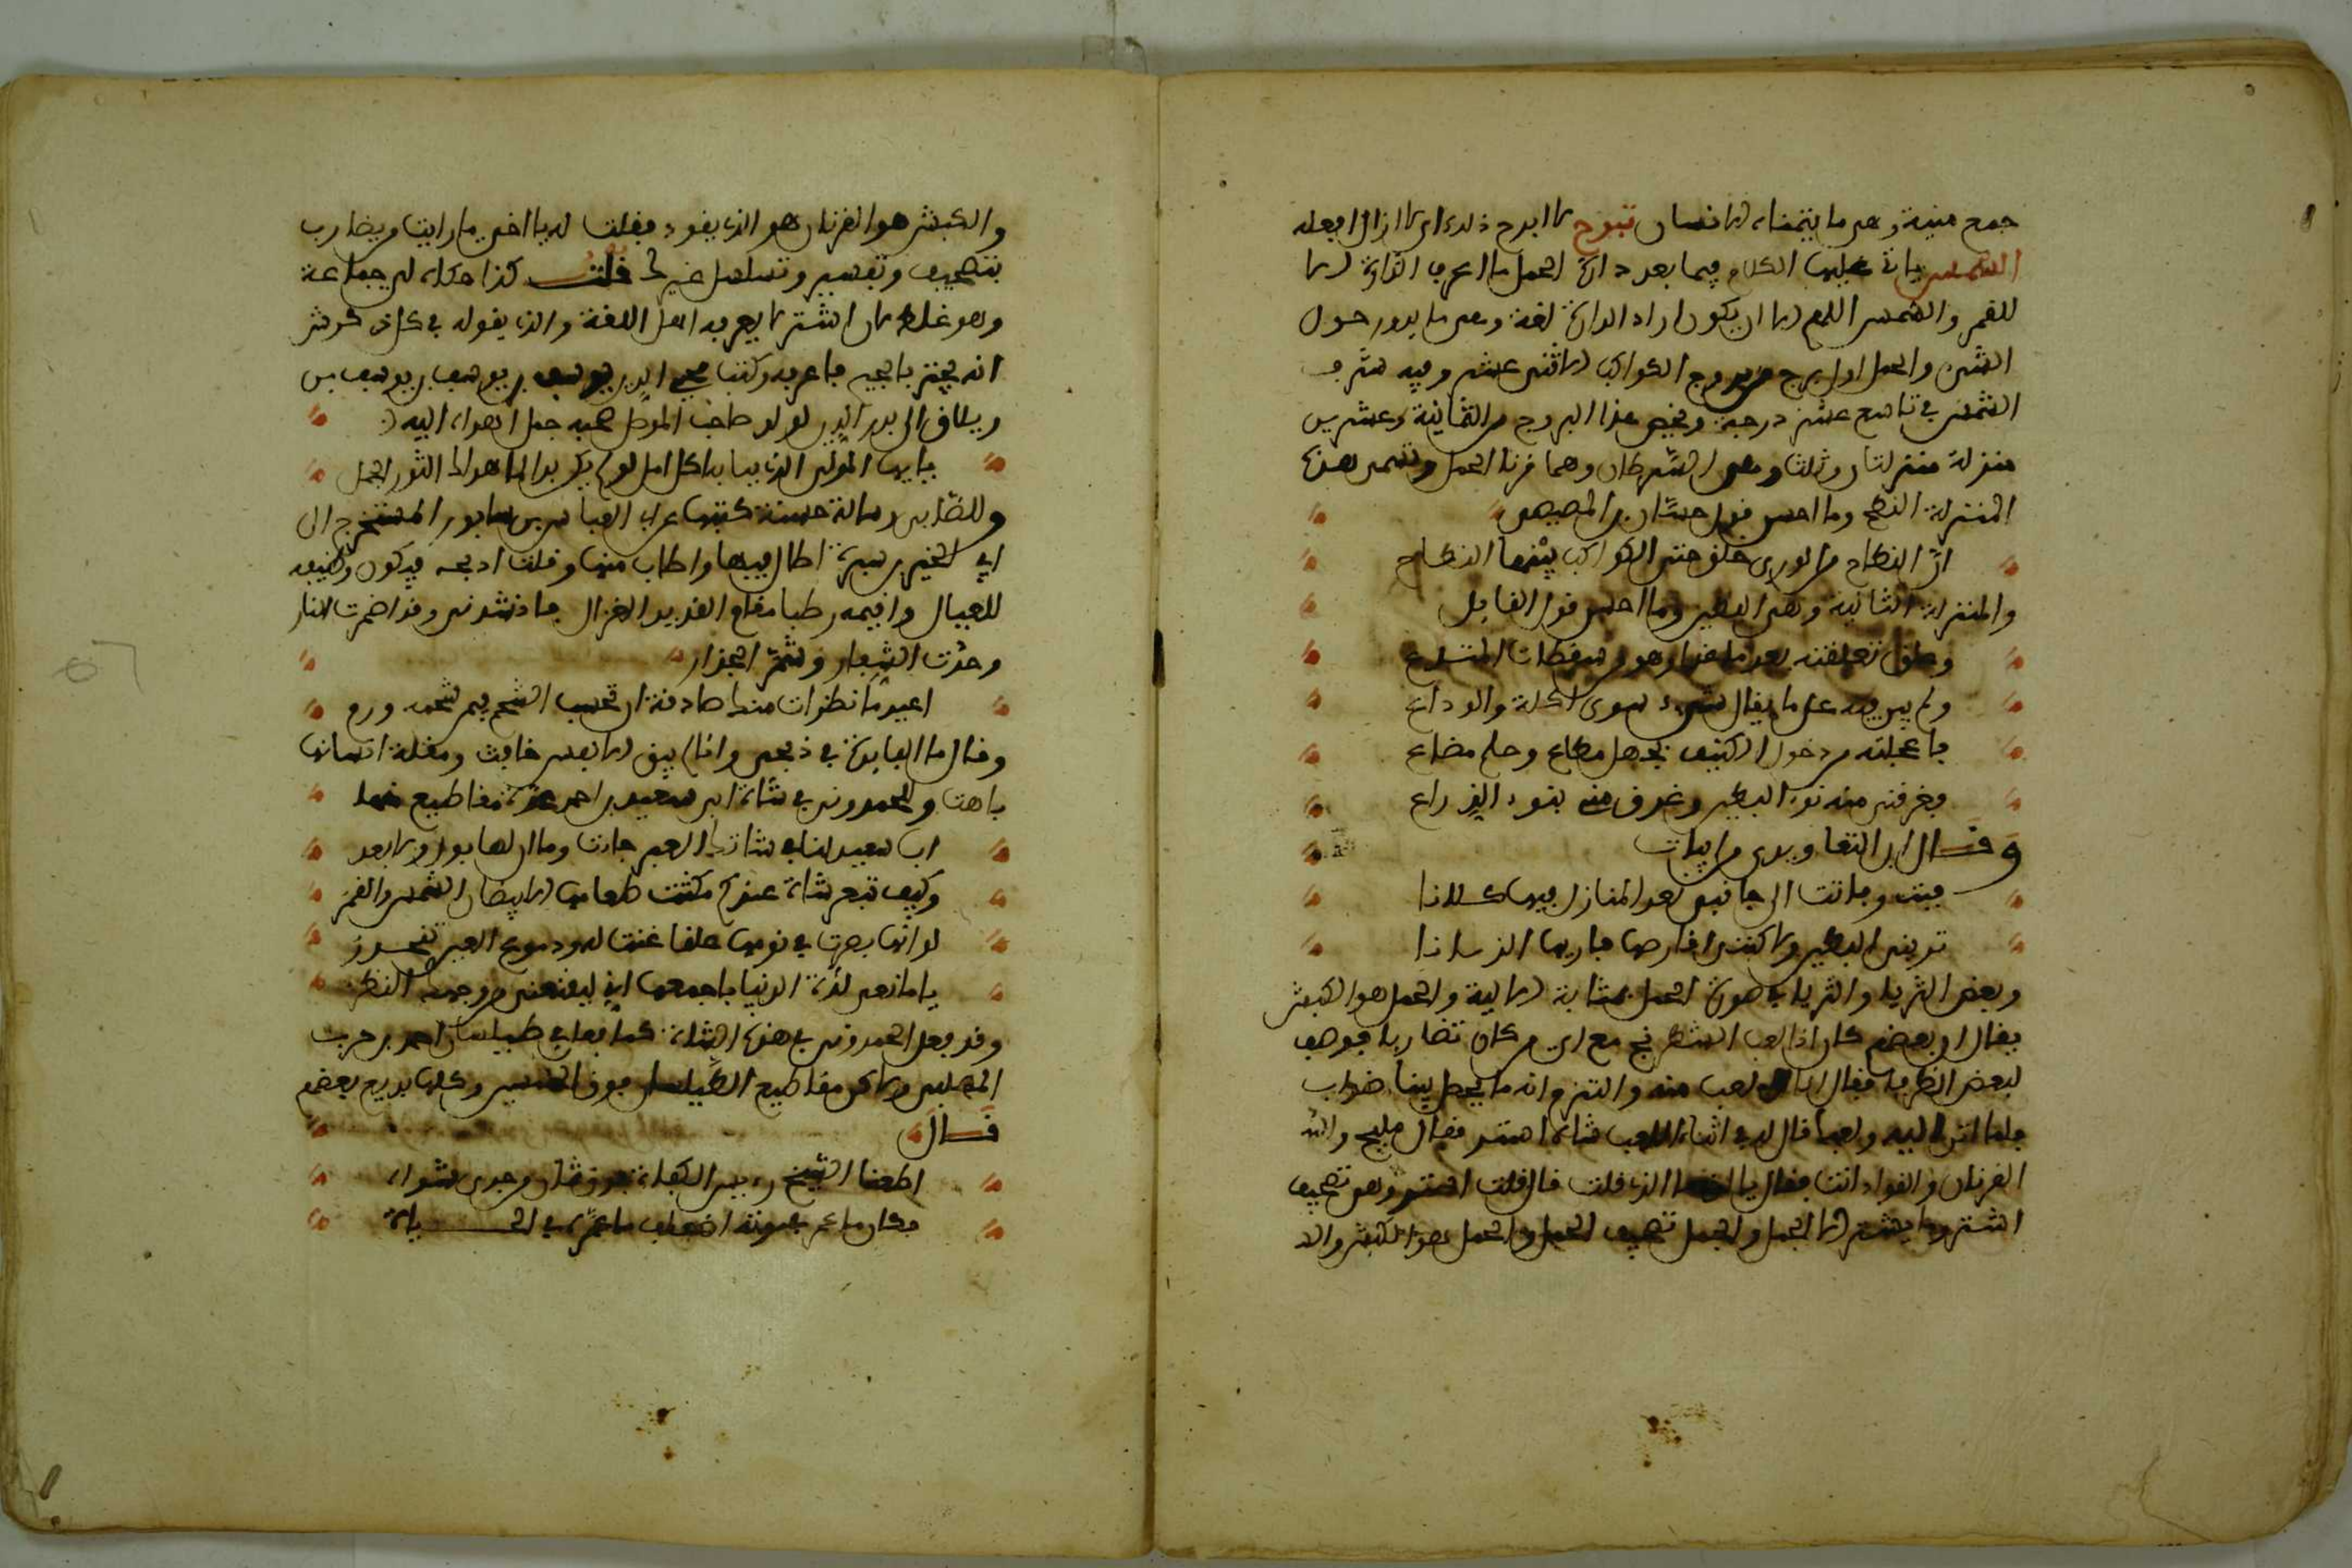 جمع منية وهي ما يتمناه الانسان تبرح لا ابرح ذلك اي لا ازال افعله
الشمس ياتي عليها الكلام فيما بعد دارة الحمل ما اعرف الدارة الا
للقمر والشمس اللهم الا ان يكون اراد الدارة لغة وهي ما يدور حول
الشيء والحمل اول برج من بروج الكواكب الاثني عشر وفيه شرف
الشمس في تاسع عشر درجة ويخص هذا البروج من الثمانية وعشرين
منزلة منزلتان وثلث وهي الشرطان وهما قرنا الحمل وتسمى هذه
المنزلة النطح وما احسن قول حسان بن المصيصي
ان النطاح من الورى خلق حتى الكواكب بينها النطاح
والمنزلة الثانية وهي البطين وما احسن قول القايل
تعلقته بعد ما وهو من سقطات المتاع
ولم يبق فيه على ما يقال شيء سوى اكلة والوداع
فاعجلته من دخول الكنيف بجهل مطاع وحلم مضاع
فغرقني منه نوء البطين وغرق منه بنوء الذراع
وقال ابن التعاويذي من ابيات
فبت وباتت الى جانبي نعد المنازل فيها كلانا
تريني البطين ولا كنت افارصها فاريها الزبانا
وبعض الثريا والثريا في صورة الحمل بمثابة الالية والحمل هو الكبش
يقال ان بعضهم كان اذا لعب الشطرنج مع اي من كان تضاربا فوصف
لبعض الظرفا فقال انا العب معه والتزم انه ما يحصل بيننا ضراب
فلما اتى اليه ولعبا قال له في اثناء اللعب شاه استتر فقال مليح والله
القرنان والقواد انت فقال يا الذي قلت قال قلت استتر وهو تصحيف
اشتر وما يجتر الا الجمل والجمل تصحيف الحمل والحمل هو الكبش والد
والكبش هو القرنان هو الذي يقود فقلت له يا اخي ما رايت من يضارب
بتصحيف وتفسير وتسلسل غيرك قلت كذا حكاه لي جماعة
وهو غلط لان اشتر لا يعرفه اهل اللغة والذي يقوله في كل ذي كرش
انه يجتر بالجيم فاعرفه وكتب محيي الدين يوسف بن يوسف بن يوسف بن
زيلاق الى بدر الدين لولو صاحب الموصل صحبة حمل اهداه اليه
يا ايها المولى الذي بيا به كل امل لو لم يكن بدر لما اهدى له الثور الحمل
وللصابي رسالة حسنة كتبها عن ابي العباس بن سابور المستخرج الى
ابي الخير بن سيرة اطال فيها واطاب منها وقلت اذبحه فيكون وظيفة
للعيال واقيمه رطبا مقام القديد الغزال فانشدني وقد اضرمت النار
وحدت الشفار وشمر الجزار
اعيذها نظرات منك صادقة ان تحسب الشحم فيمن شحمه ورم
وقال ما الفايدة في ذبحي وانا لم يبق الا نفس خافت ومقلة انسانها
باهت وللحمدوني في شاة ابن سعيد بن احمد عدة مقاطيع منها
ابا سعيد لنا في شاتك العبر جاءت وما ان لها بول ولا بعر
وكيف تبعر شاة عندكم مكثت طعامها الابيضان الشمس والقمر
لو انها ابصرت في نومها علفا غنت له ودموع العين تنحدر
يا مانعي لذة الدنيا باجمعها اني ليفتنني من وجهك النظر
وقد فعل الحمدوني في هذه الشاة كما فعل في طيلسان احمد بن حرب
المهلبي ولاكن مقاطيع الطيلسان فوق الخمسين وكلها بديع بعضهم
قال
اطعنا الشيخ ربيبي جدي شواء
فكان ما